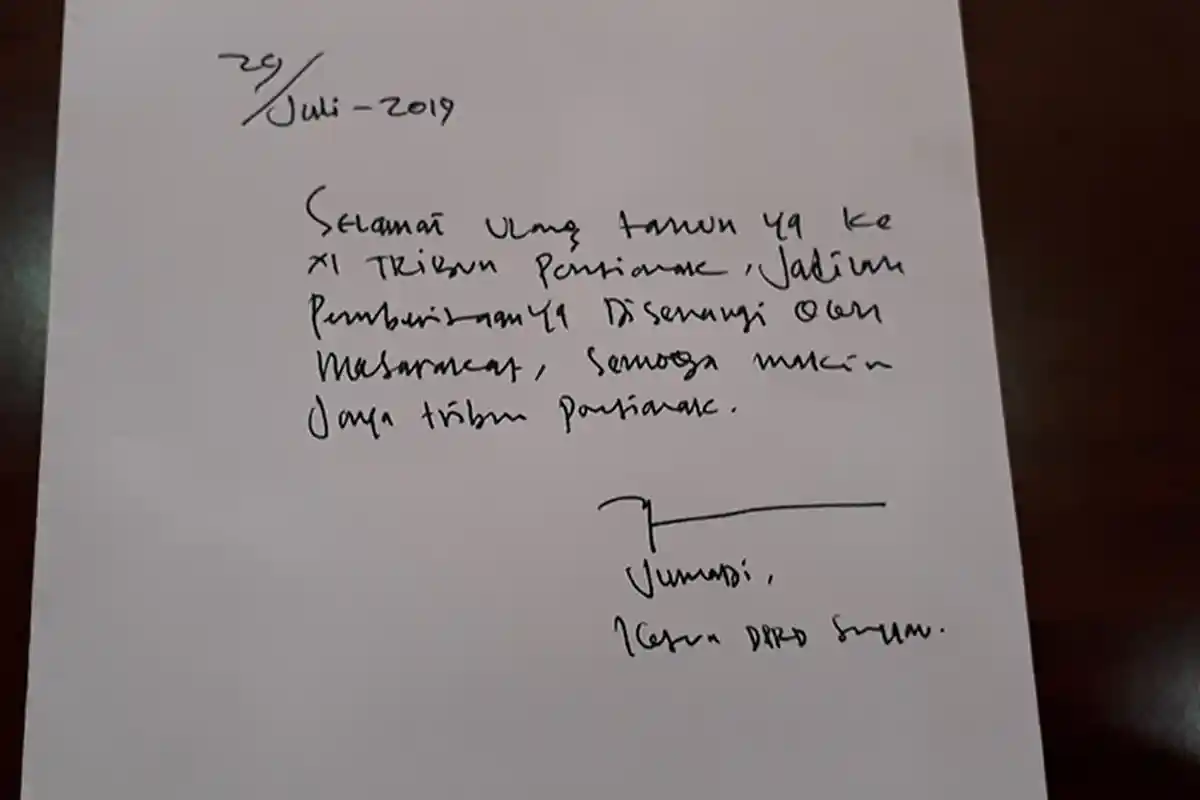 29/Juli - 2019
Selamat ulang tahun yg ke
XI Tribun Pontianak, Jadikan
Pemberitaanyg Disenangi Oleh
Masarakat, Semoga makin
Jaya tribun Pontianak.
Jumadi,
Ketua DPRD